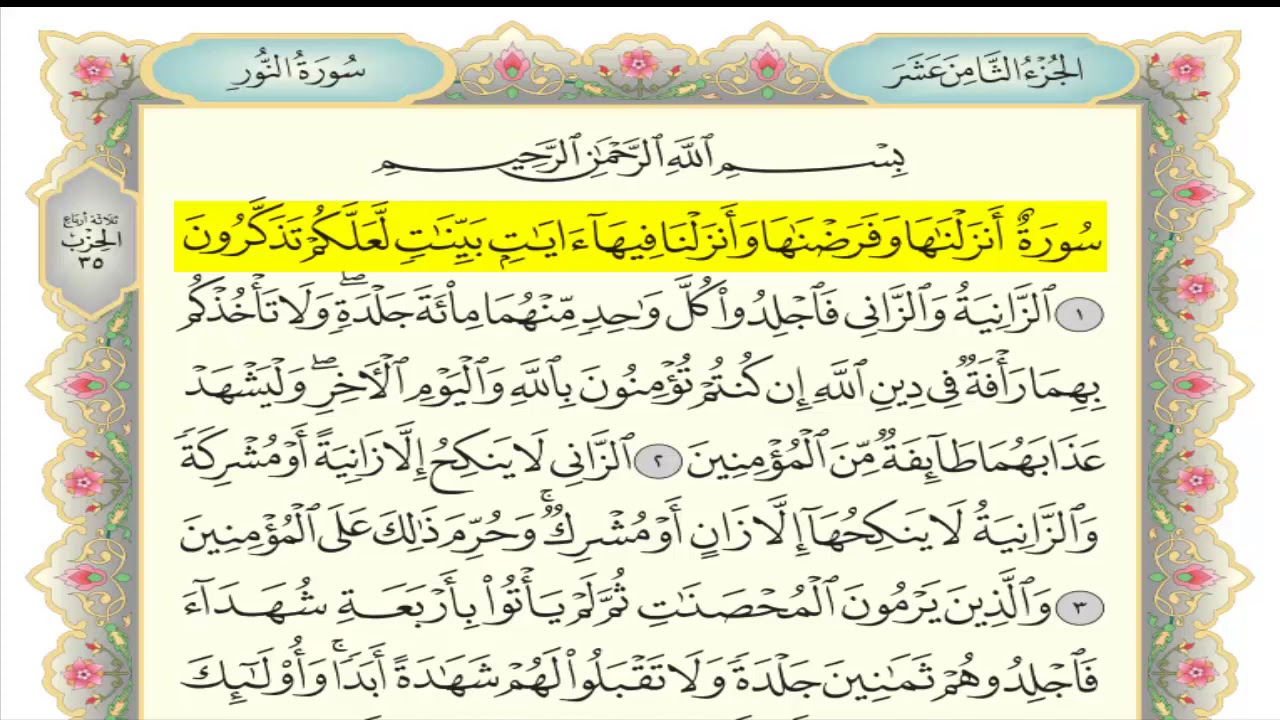 الجُزْءُ الثَّامِنَ عَشَرَ
سُورَةُ النُّورِ
ثلاثة أرباع
الحِزْب
٣٥
بِسْمِ ٱللَّهِ ٱلرَّحْمَٰنِ ٱلرَّحِيمِ
سُورَةٌ أَنزَلْنَٰهَا وَفَرَضْنَٰهَا وَأَنزَلْنَا فِيهَآ ءَايَٰتٍۭ بَيِّنَٰتٍ لَّعَلَّكُمْ تَذَكَّرُونَ
١ ٱلزَّانِيَةُ وَٱلزَّانِى فَٱجْلِدُوا۟ كُلَّ وَٰحِدٍ مِّنْهُمَا مِا۟ئَةَ جَلْدَةٍ ۖ وَلَا تَأْخُذْكُم
بِهِمَا رَأْفَةٌ فِى دِينِ ٱللَّهِ إِن كُنتُمْ تُؤْمِنُونَ بِٱللَّهِ وَٱلْيَوْمِ ٱلْءَاخِرِ ۖ وَلْيَشْهَدْ
عَذَابَهُمَا طَآئِفَةٌ مِّنَ ٱلْمُؤْمِنِينَ ٢ ٱلزَّانِى لَا يَنكِحُ إِلَّا زَانِيَةً أَوْ مُشْرِكَةً
وَٱلزَّانِيَةُ لَا يَنكِحُهَآ إِلَّا زَانٍ أَوْ مُشْرِكٌ ۚ وَحُرِّمَ ذَٰلِكَ عَلَى ٱلْمُؤْمِنِينَ
٣ وَٱلَّذِينَ يَرْمُونَ ٱلْمُحْصَنَٰتِ ثُمَّ لَمْ يَأْتُوا۟ بِأَرْبَعَةِ شُهَدَآءَ
فَٱجْلِدُوهُمْ ثَمَٰنِينَ جَلْدَةً وَلَا تَقْبَلُوا۟ لَهُمْ شَهَٰدَةً أَبَدًا ۚ وَأُو۟لَٰٓئِكَ